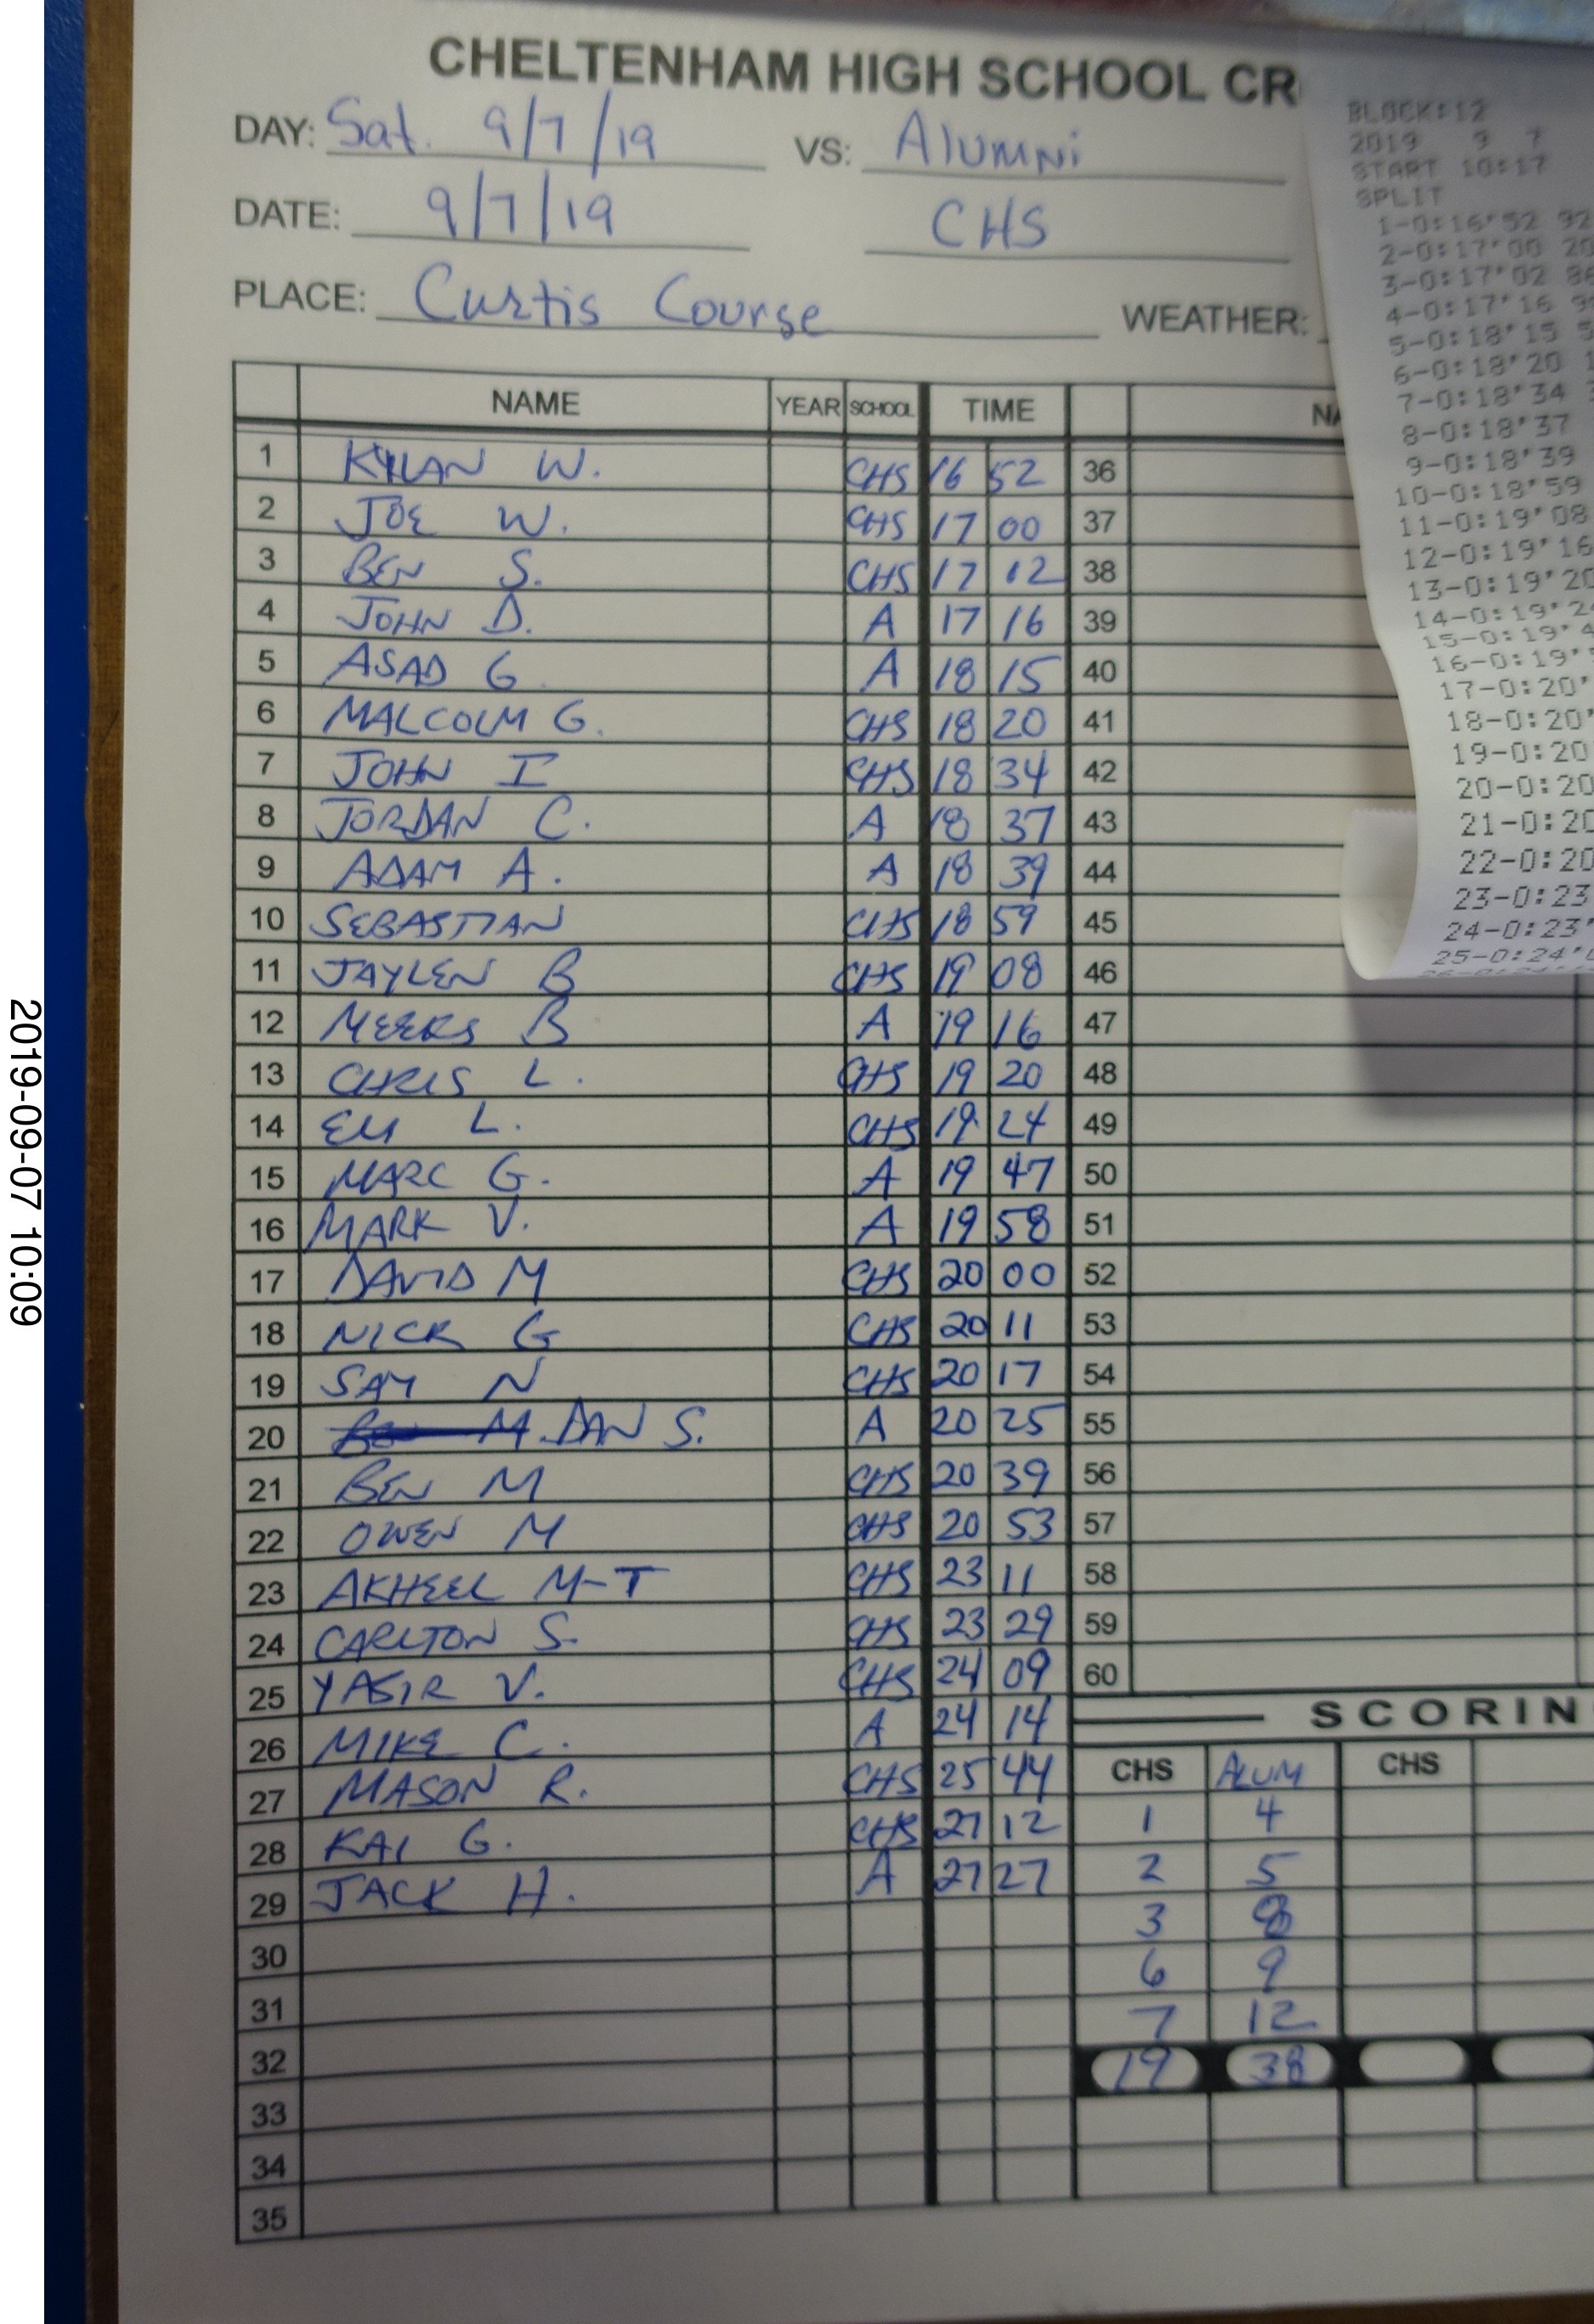 CHELTENHAM HIGH SCHOOL CR
DAY: Sat. 9/7/19 VS: Alumni
DATE: 9/7/19 CHS
PLACE: Curtis Course WEATHER:
BLOCK:12
2019 9 7
START 10:17
SPLIT
1-0:16'52 92
2-0:17'00 20
3-0:17'02 86
4-0:17'16 9
5-0:18'15 5
6-0:18'20 1
7-0:18'34
8-0:18'37
9-0:18'39
10-0:18'59
11-0:19'08
12-0:19'16
13-0:19'20
14-0:19'2
15-0:19'4
16-0:19'
17-0:20'
18-0:20'
19-0:20
20-0:20
21-0:20
22-0:20
23-0:23
24-0:23'
25-0:24'0
NAME YEAR SCHOOL TIME NA
1 KYLAN W. CHS 16 52 36
2 JOE W. CHS 17 00 37
3 BEN S. CHS 17 12 38
4 JOHN D. A 17 16 39
5 ASAD G. A 18 15 40
6 MALCOLM G. CHS 18 20 41
7 JOHN I CHS 18 34 42
8 JORDAN C. A 18 37 43
9 ADAM A. A 18 39 44
10 SEBASTIAN CHS 18 59 45
11 JAYLEN B CHS 19 08 46
12 MEEKS B A 19 16 47
13 CHRIS L. CHS 19 20 48
14 ELI L. CHS 19 24 49
15 MARC G. A 19 47 50
16 MARK V. A 19 58 51
17 DAVID M CHS 20 00 52
18 NICK G CHS 20 11 53
19 SAM N CHS 20 17 54
20 DAN S. A 20 25 55
21 BEN M CHS 20 39 56
22 OWEN M CHS 20 53 57
23 AKHEEL M-T CHS 23 11 58
24 CARLTON S. CHS 23 29 59
25 YASIR V. CHS 24 09 60
26 MIKE C. A 24 14
27 MASON R. CHS 25 44
28 KAI G. CHS 27 12
29 JACK H. A 27 27
30
31
32
33
34
35
SCORIN
CHS ALUM CHS
1 4
2 5
3 8
6 9
7 12
19 38
2019-09-07 10:09